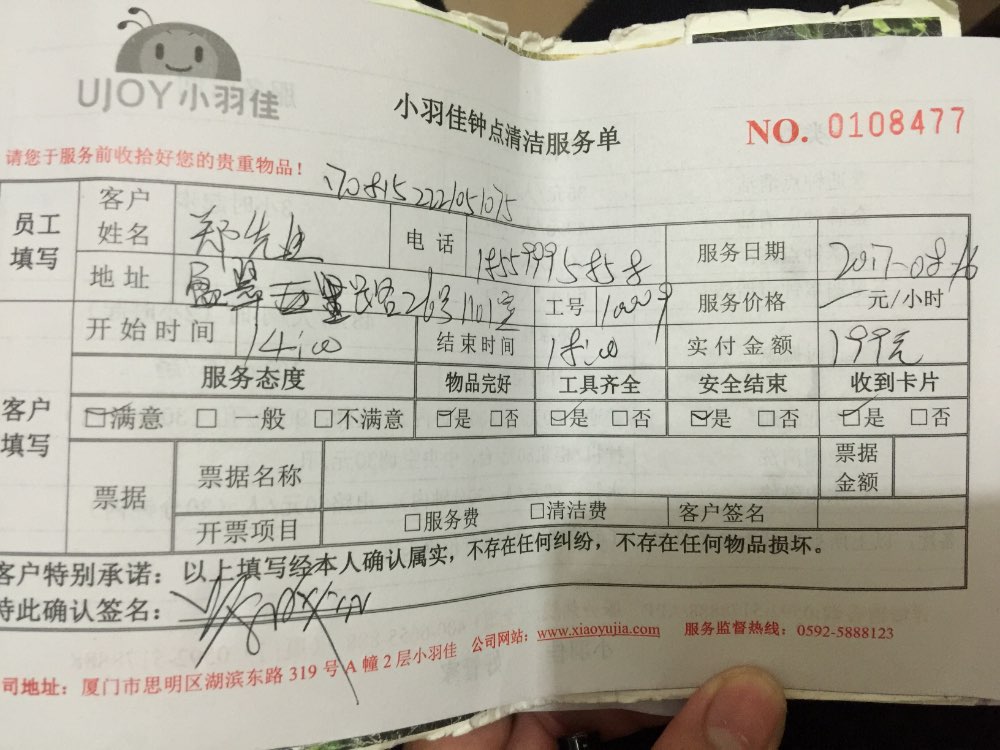 UJOY小羽佳
小羽佳钟点清洁服务单
NO. 0108477
请您于服务前收拾好您的贵重物品！
1708152221051075
员工填写 客户姓名 郑先生 电话 18559995858 服务日期 2017-08-16
地址 26号1101室 工号 服务价格 一元/小时
开始时间 14:00 结束时间 18:00 实付金额 199元
客户填写 服务态度 物品完好 工具齐全 安全结束 收到卡片
☑满意 □一般 □不满意 ☑是 □否 ☑是 □否 ☑是 □否 ☑是 □否
票据 票据名称 票据金额
开票项目 □服务费 □清洁费 客户签名
客户特别承诺：以上填写经本人确认属实，不存在任何纠纷，不存在任何物品损坏。
特此确认签名：
司地址：厦门市思明区湖滨东路319号A幢2层小羽佳 公司网站：www.xiaoyujia.com 服务监督热线：0592-5888123